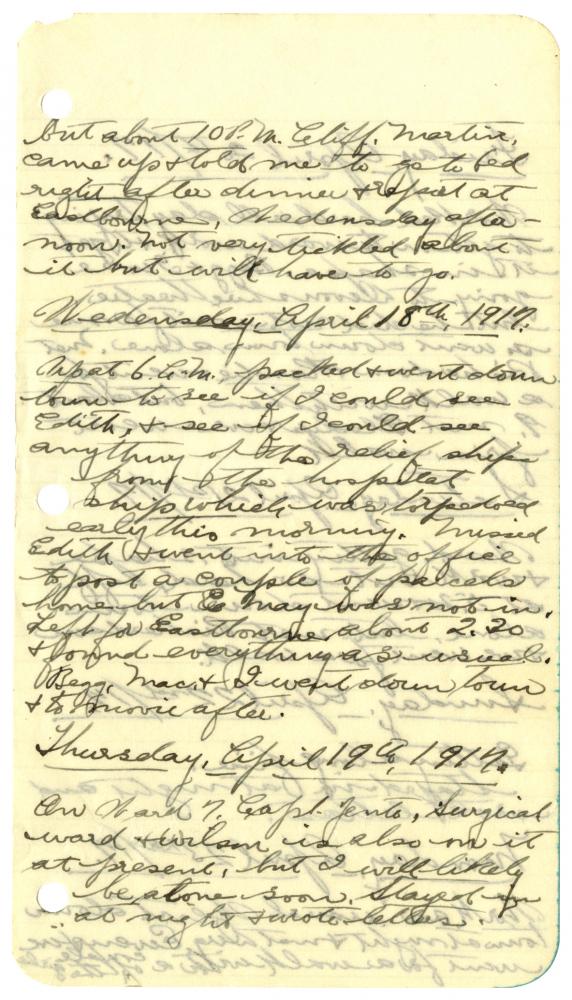 but about 10 P.M. Cliff. Martin,
came up & told me to go to bed
right after dinner & report at
Eastbourne, Wedensday after-
noon. Not very tickled about
it but will have to go.
Wedensday, April 18th, 1917.
Up at 6 A.M., packed & went down
town to see if I could see
Edith, & see if I could see
anything of the relief ship
from the hospital
ship which was torpedoed
early this morning. Missed
Edith & went into the office
to post a couple of parcels
home but E. May was not in.
Left for Eastbourne about 2.20
& found everything as usual.
Begg, Mac, & I went down town
& to movie after.
Thursday, April 19th, 1917.
On Ward 7, Capt. , Surgical
ward & Wilson is also on it
at present, but I will likely
be alone soon. Stayed in
at night & wrote letters.